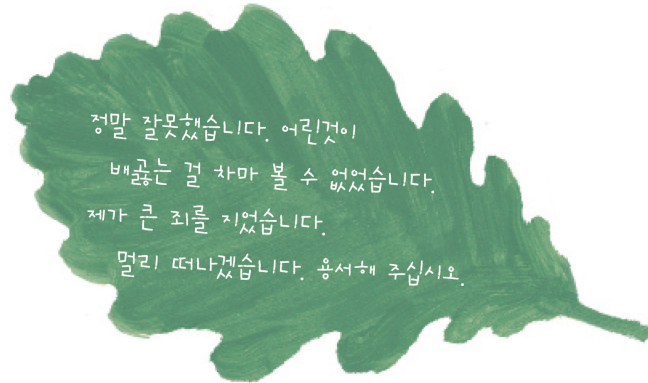 정말 잘못했습니다. 어린것이
배곯는 걸 차마 볼 수 없었습니다.
제가 큰 죄를 지었습니다.
멀리 떠나겠습니다. 용서해 주십시오.